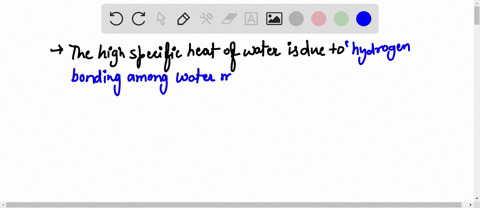 → The high specific heat of water is due to hydrogen
bonding among water